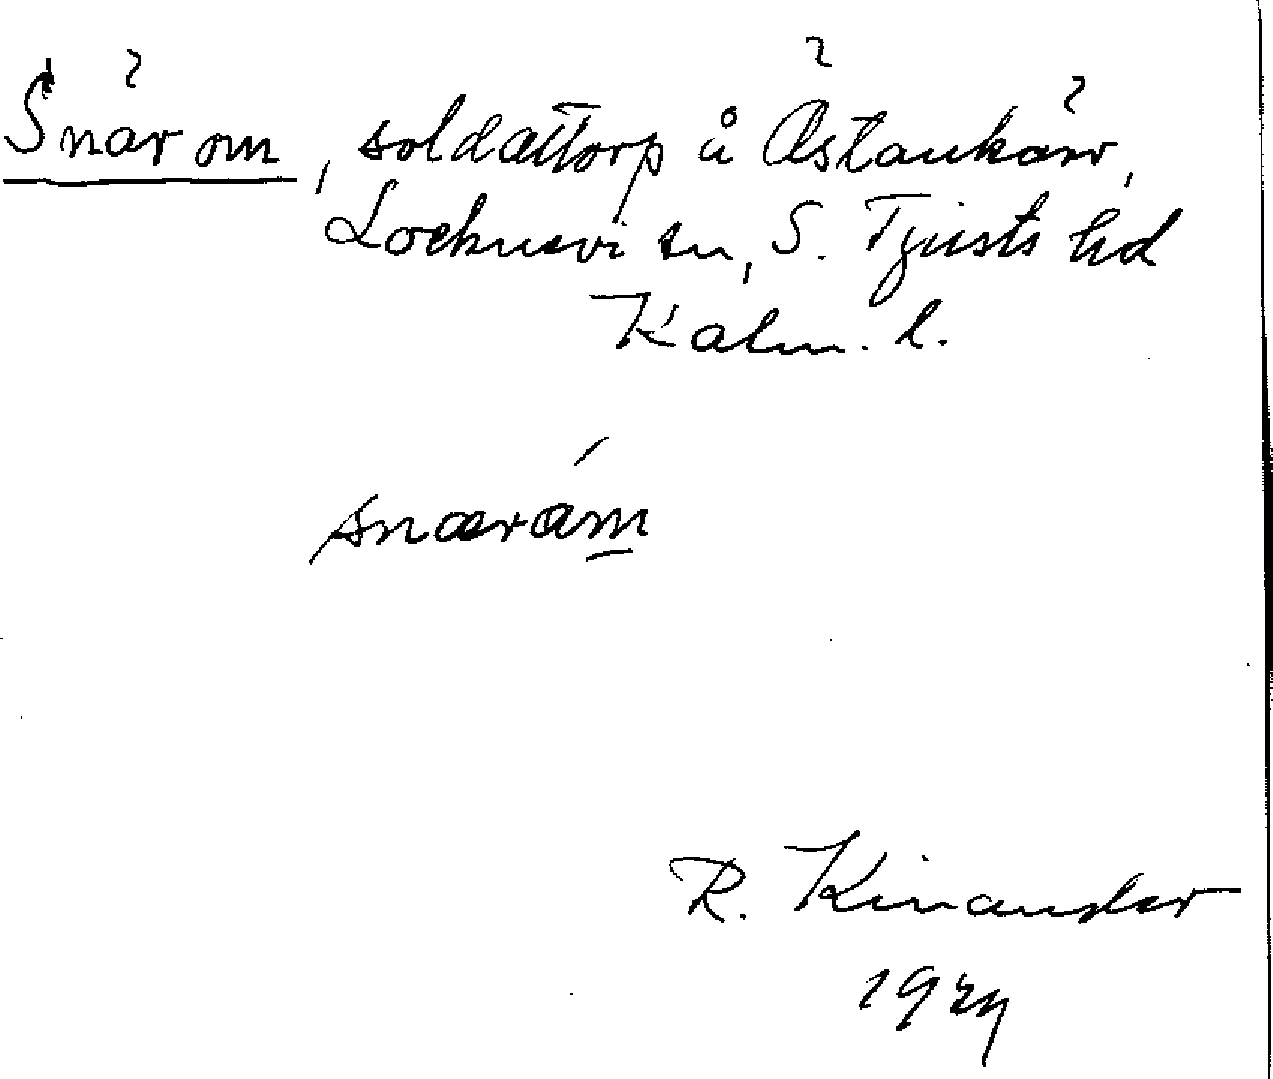 Snärom, soldattorp å Östankärr,
Locknevi sn, S. Tjusts hd
Kalm. l.
snæråm
R. Kinander